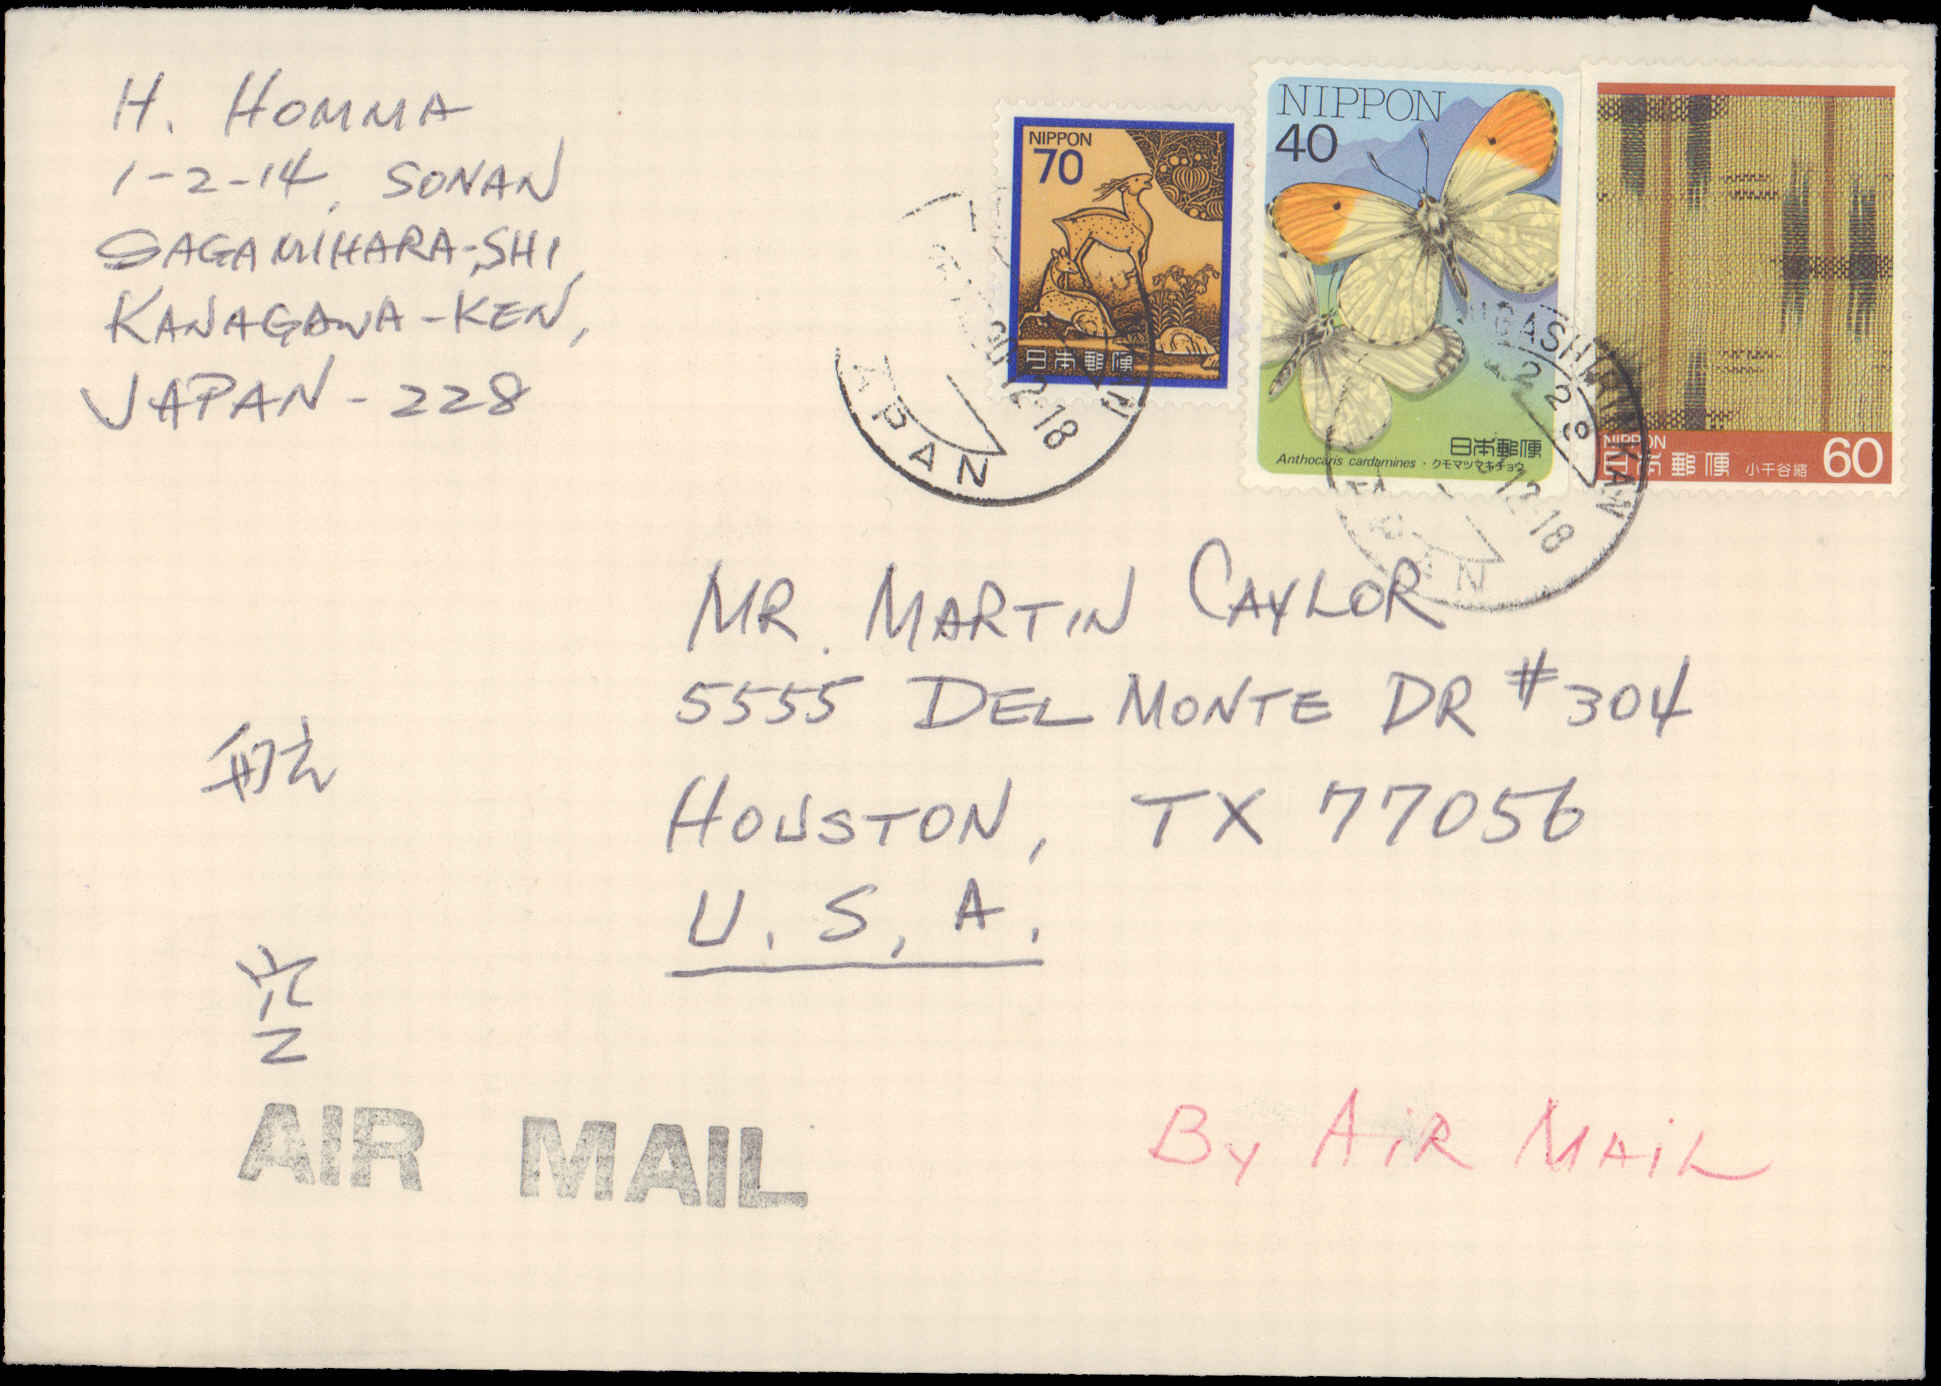 H. HOMMA
1-2-14, SONAN
SAGAMIHARA-SHI,
KANAGAWA-KEN,
JAPAN - 228
NIPPON
70
日本郵便
NIPPON
40
日本郵便
Anthocaris cardamines・クモマツマキチョウ
NIPPON
日本郵便 小千谷縮 60
JAPAN
12-18
228
12-18
MR. MARTIN CAYLOR
5555 DEL MONTE DR #304
HOUSTON, TX 77056
U.S.A.
航
空
AIR MAIL
By AiR MAiL